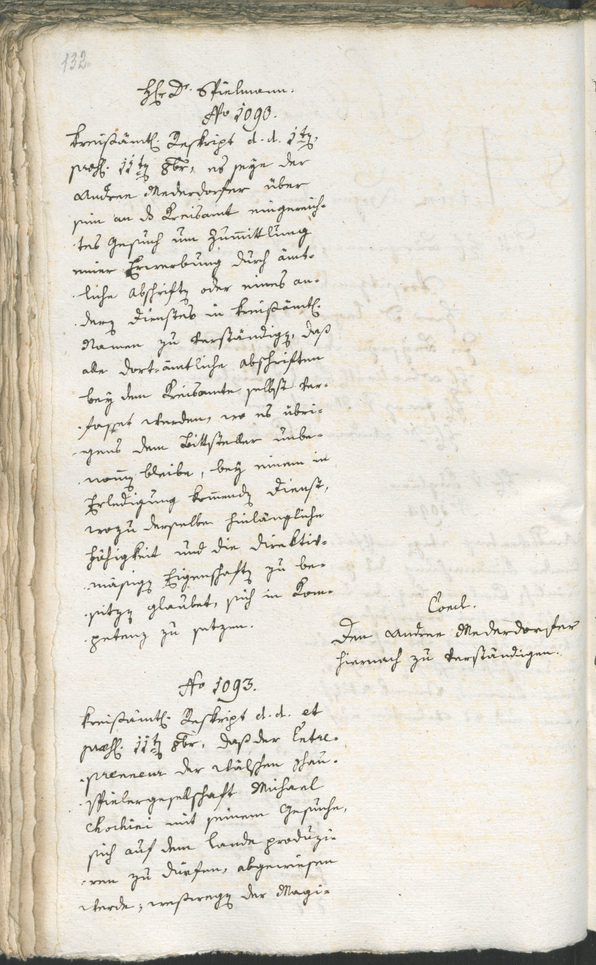 132.
H: Dr. Spielmann.
No 1090.
Kreisämtl. Reskript d. d. 1t
praes. 11t 8br, es seye der
Andree Mederdorfer über
sein an das Kreisamt eingereich-
tes Gesuch um Zumittlung
einer Erwerbung durch ämt-
liche Abschrift oder eines an-
dern Dienstes in kreisämtl.
Namen zu verständigen, daß
alle dortämtliche Abschriften
bey dem Kreisamte selbst ver-
fasst werden, wo es übri-
gens dem Bittsteller unbe-
nomm bleibe, bey einem in
Erledigung kommend Dienst,
wozu derselbe hinlängliche
Fähigkeit und die direktiv-
mäsige Eigenschaft zu be-
sitzen glaubet, sich in Kom-
petenz zu setzen.
Concl.
Den Andree Mederdorfer
hiernach zu verständigen.
No 1093.
Kreisämtl. Reskript d. d. et
praes. 11t 8br, daß der Entre-
preneur der wälschen Schau-
spielergesellschaft Michael
mit seinem Gesuche,
sich auf dem Lande produzi-
ren zu dürfen, abgewiesen
werde; weßwegen der Magi-